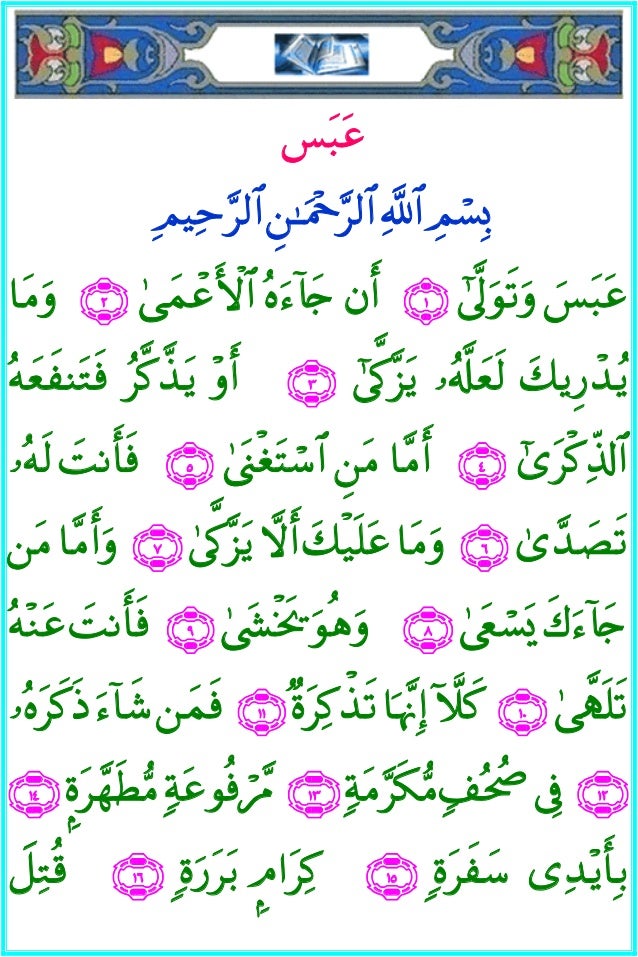 عَبَسَ
بِسْمِ ٱللَّهِ ٱلرَّحْمَـٰنِ ٱلرَّحِيمِ
عَبَسَ وَتَوَلَّىٰٓ ١ أَن جَآءَهُ ٱلْأَعْمَىٰ ٢ وَمَا
يُدْرِيكَ لَعَلَّهُۥ يَزَّكَّىٰٓ ٣ أَوْ يَذَّكَّرُ فَتَنفَعَهُ
ٱلذِّكْرَىٰٓ ٤ أَمَّا مَنِ ٱسْتَغْنَىٰ ٥ فَأَنتَ لَهُۥ
تَصَدَّىٰ ٦ وَمَا عَلَيْكَ أَلَّا يَزَّكَّىٰ ٧ وَأَمَّا مَن
جَآءَكَ يَسْعَىٰ ٨ وَهُوَ يَخْشَىٰ ٩ فَأَنتَ عَنْهُ
تَلَهَّىٰ ١٠ كَلَّآ إِنَّهَا تَذْكِرَةٌ ١١ فَمَن شَآءَ ذَكَرَهُۥ
١٢ فِى صُحُفٍ مُّكَرَّمَةٍ ١٣ مَّرْفُوعَةٍ مُّطَهَّرَةٍۭ ١٤
بِأَيْدِى سَفَرَةٍ ١٥ كِرَامٍۭ بَرَرَةٍ ١٦ قُتِلَ